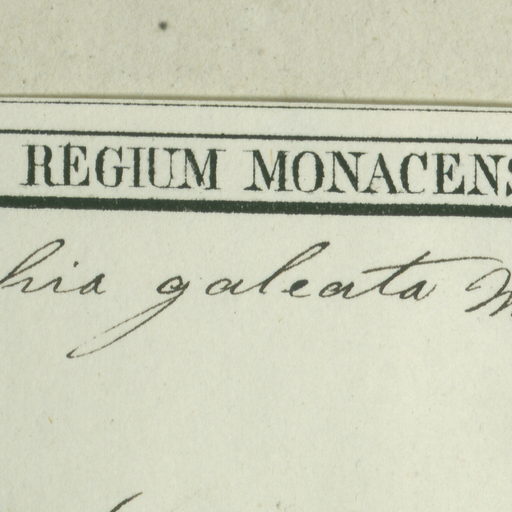 REGIUM MONACENS
hia galeata M